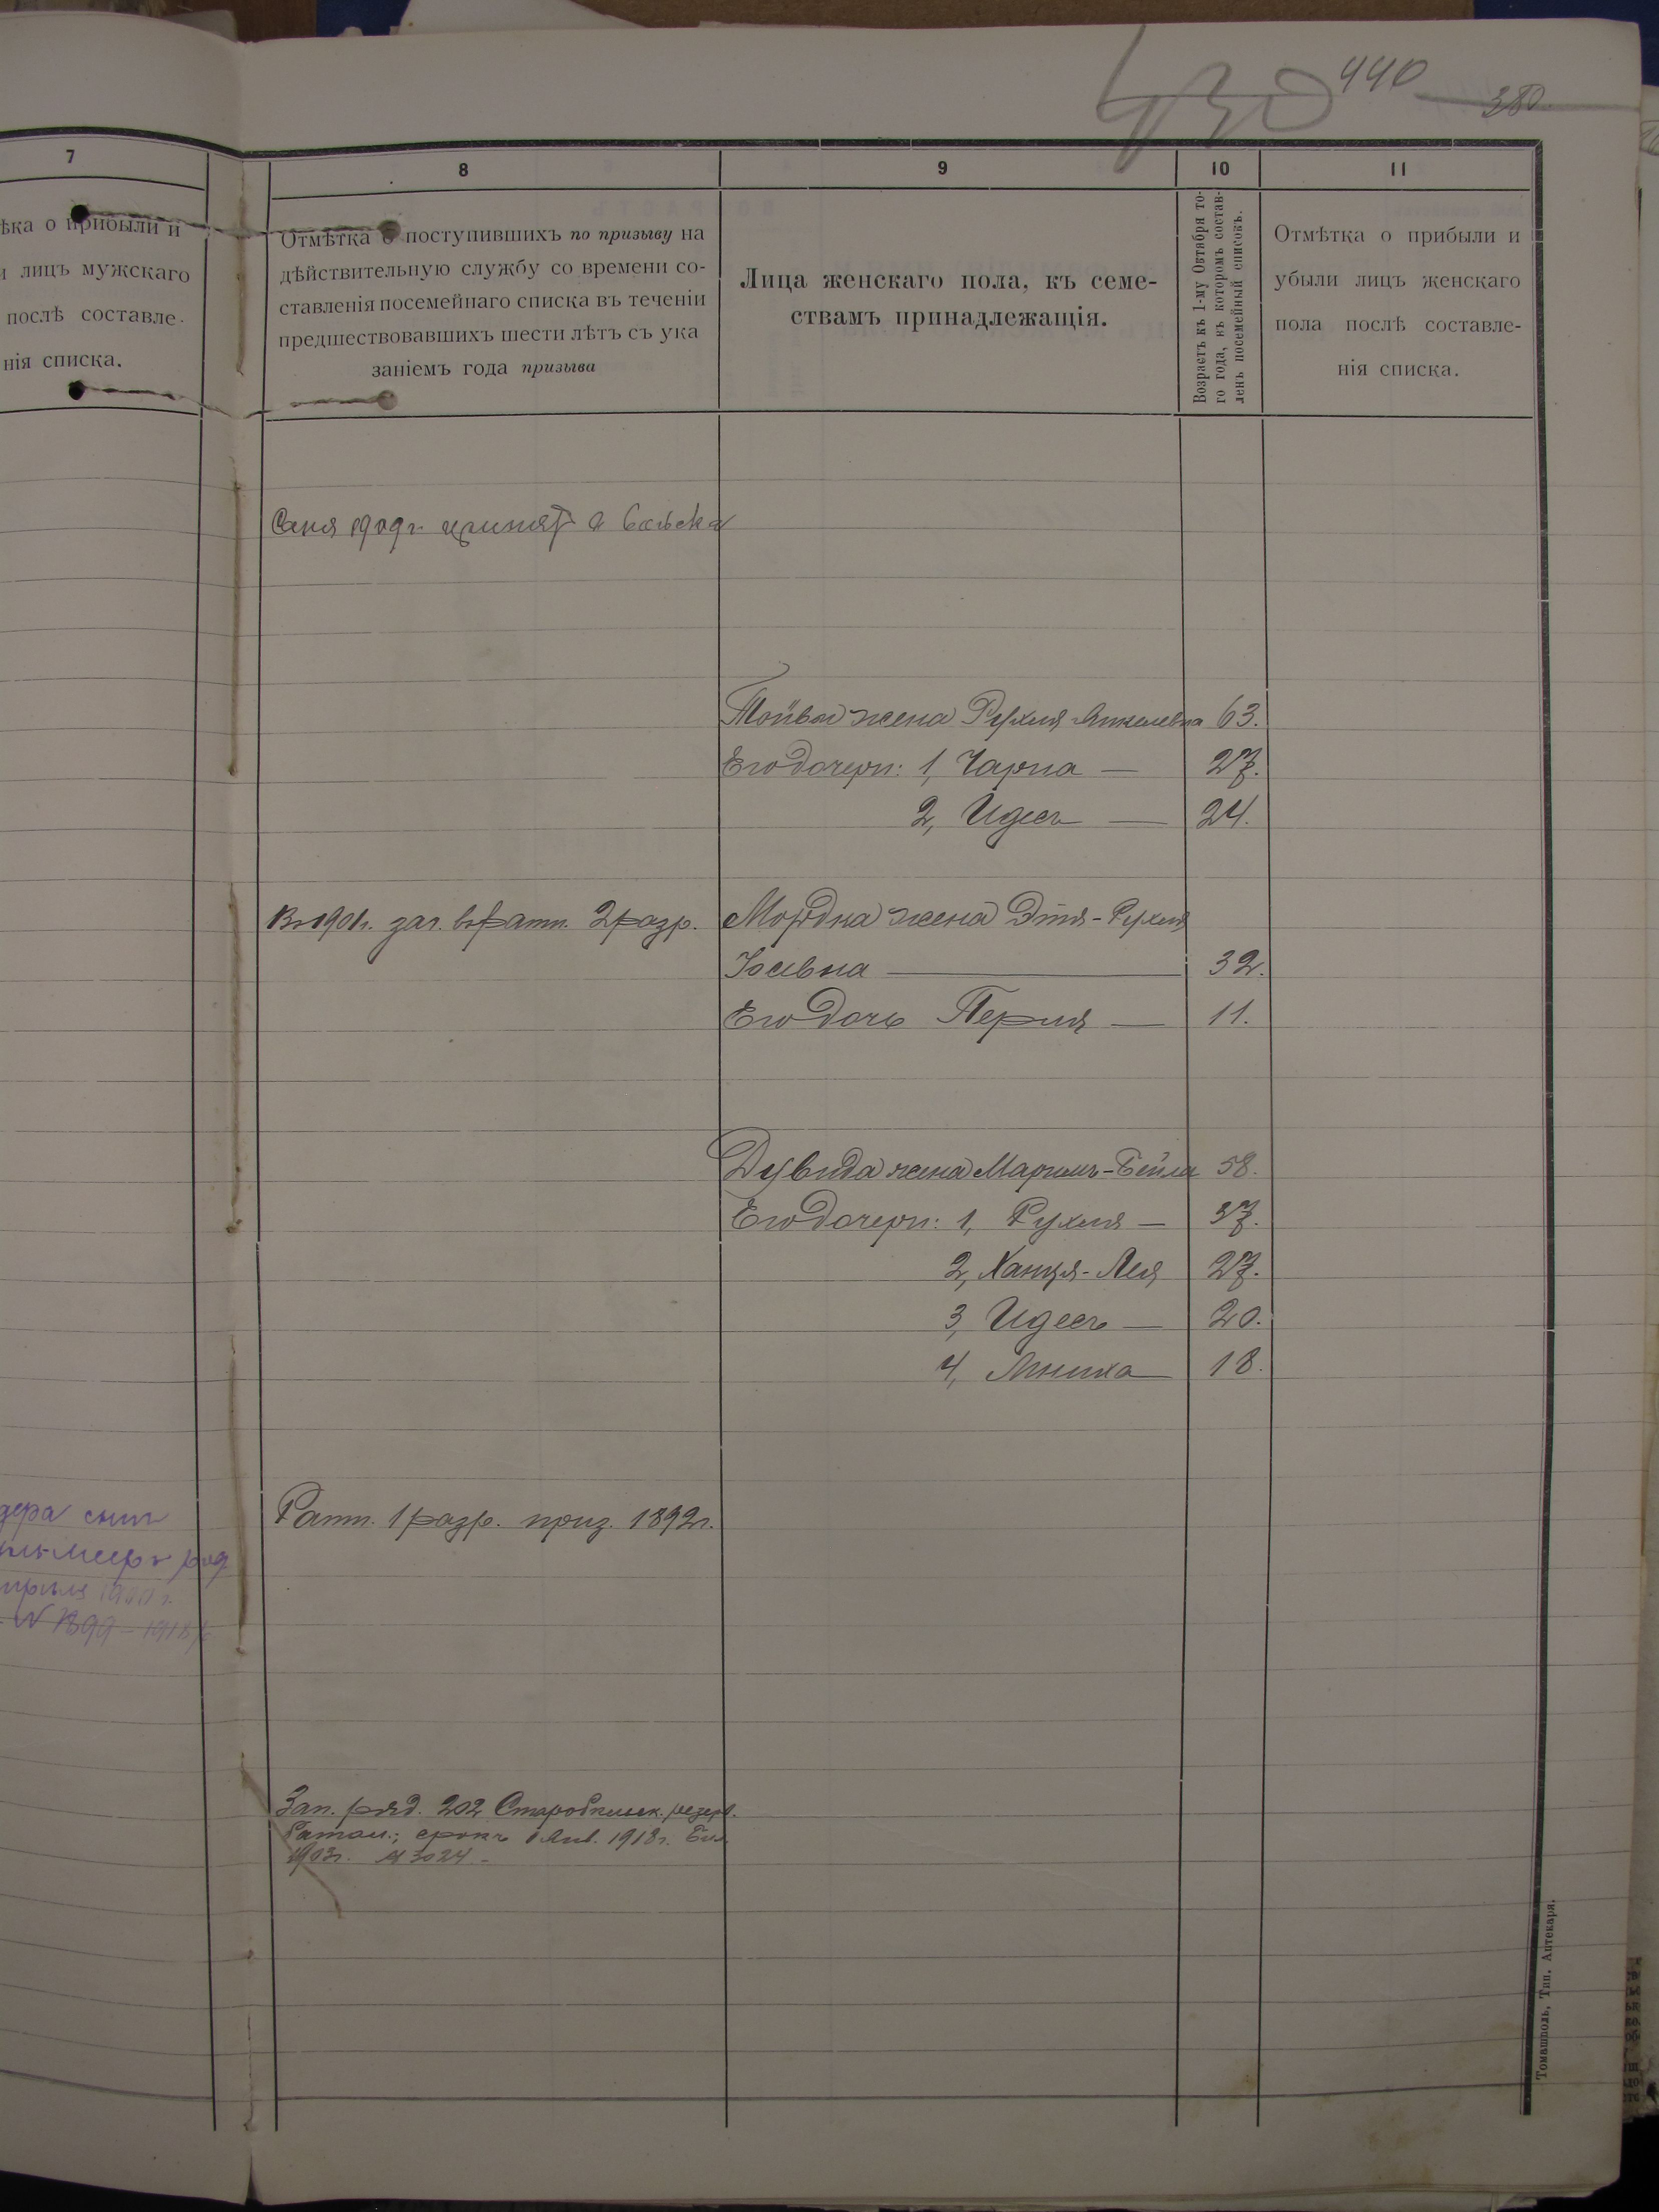 440
380.
7
8
9
10
11
ѣка о прибыли и
и лицъ мужскаго
послѣ составле-
нія списка.
Отмѣтка о поступившихъ по призыву на
дѣйствительную службу со времени со-
ставленія посемейнаго списка въ теченіи
предшествовавшихъ шести лѣтъ съ ука
заніемъ года призыва
Лица женскаго пола, къ семе-
ствамъ принадлежащія.
Возрастъ къ 1-му Октября то-
го года, въ которомъ состав-
ленъ посемейный списокъ.
Отмѣтка о прибыли и
убыли лицъ женскаго
пола послѣ составле-
нія списка.
1909г. принят в войска
Тойвы жена Рухля Янкелевна 63.
Его дочери: 1, Чарна — 27.
2, Идесъ — 24.
В 1901г. зач. в ратн. 2 разр.
Мордка жена Этя-Рухля
Іосивна — 32.
Его дочь Перля — 11.
Дувида жена Маріамъ-Бейла 58.
Его дочери: 1, Рухля — 37.
2, Ханця-Лея 27.
3, Идесъ — 20.
4, 18.
Ратн. 1 разр. приз. 1892г.
1900 г.
N 1899
Зап. ряд. 202 резерв.
батал.; срокъ 1 Янв. 1918г. Бил.
1903г. № 3024
Томашполь, Тип. Аптекаря.